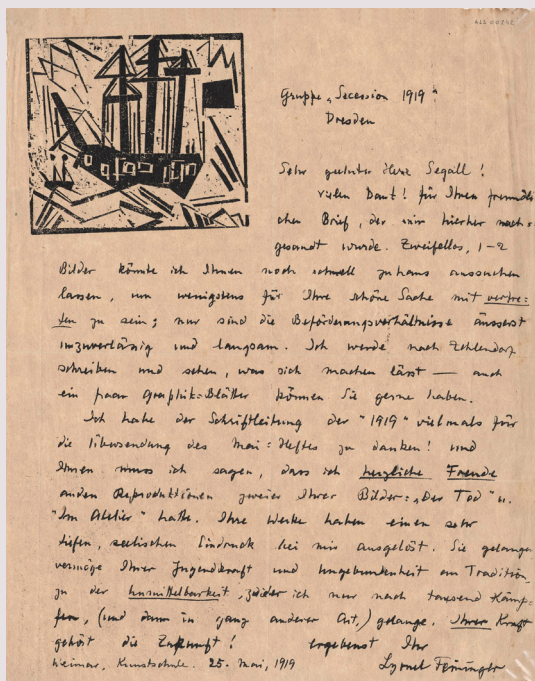 ALS 00242
Gruppe „Secession 1919".
Dresden
Sehr geehrter Herr Segall!
vielen Dank! für Ihren freundli
chen Brief, der mir hierher nach=
gesandt wurde. Zweifellos, 1-2
Bilder könnte ich Ihnen noch schnell zuhaus aussuchen
lassen, um wenigstens für Ihre schöne Sache mit vertre=
ten zu sein; nur sind die Beförderungsverhältnisse äusserst
unzuverlässig und langsam. Ich werde nach Zehlendorf
schreiben und sehen, was sich machen lässt — auch
ein paar Graphik=Blätter können Sie gerne haben.
Ich habe der Schriftleitung der "1919" vielmals für
die Übersendung des Mai=Heftes zu danken! und
Ihnen muss ich sagen, dass ich herzliche Freude
an den Reproduktionen zweier Ihrer Bilder: „Der Tod" u.
"Im Atelier" hatte. Ihre Werke haben einen sehr
tiefen, seelischen Eindruck bei mir ausgelöst. Sie gelangen
vermöge Ihrer Jugendkraft und Ungebundenheit an Tradition,
zu der Unmittelbarkeit, zu der ich nur nach tausend Kämp-
fen, (und dann in ganz anderer Art,) gelange. Ihrer Kraft
gehört die Zukunft! ergebenst Ihr
Weimar, Kunstschule. 25. Mai, 1919 Lyonel Feininger